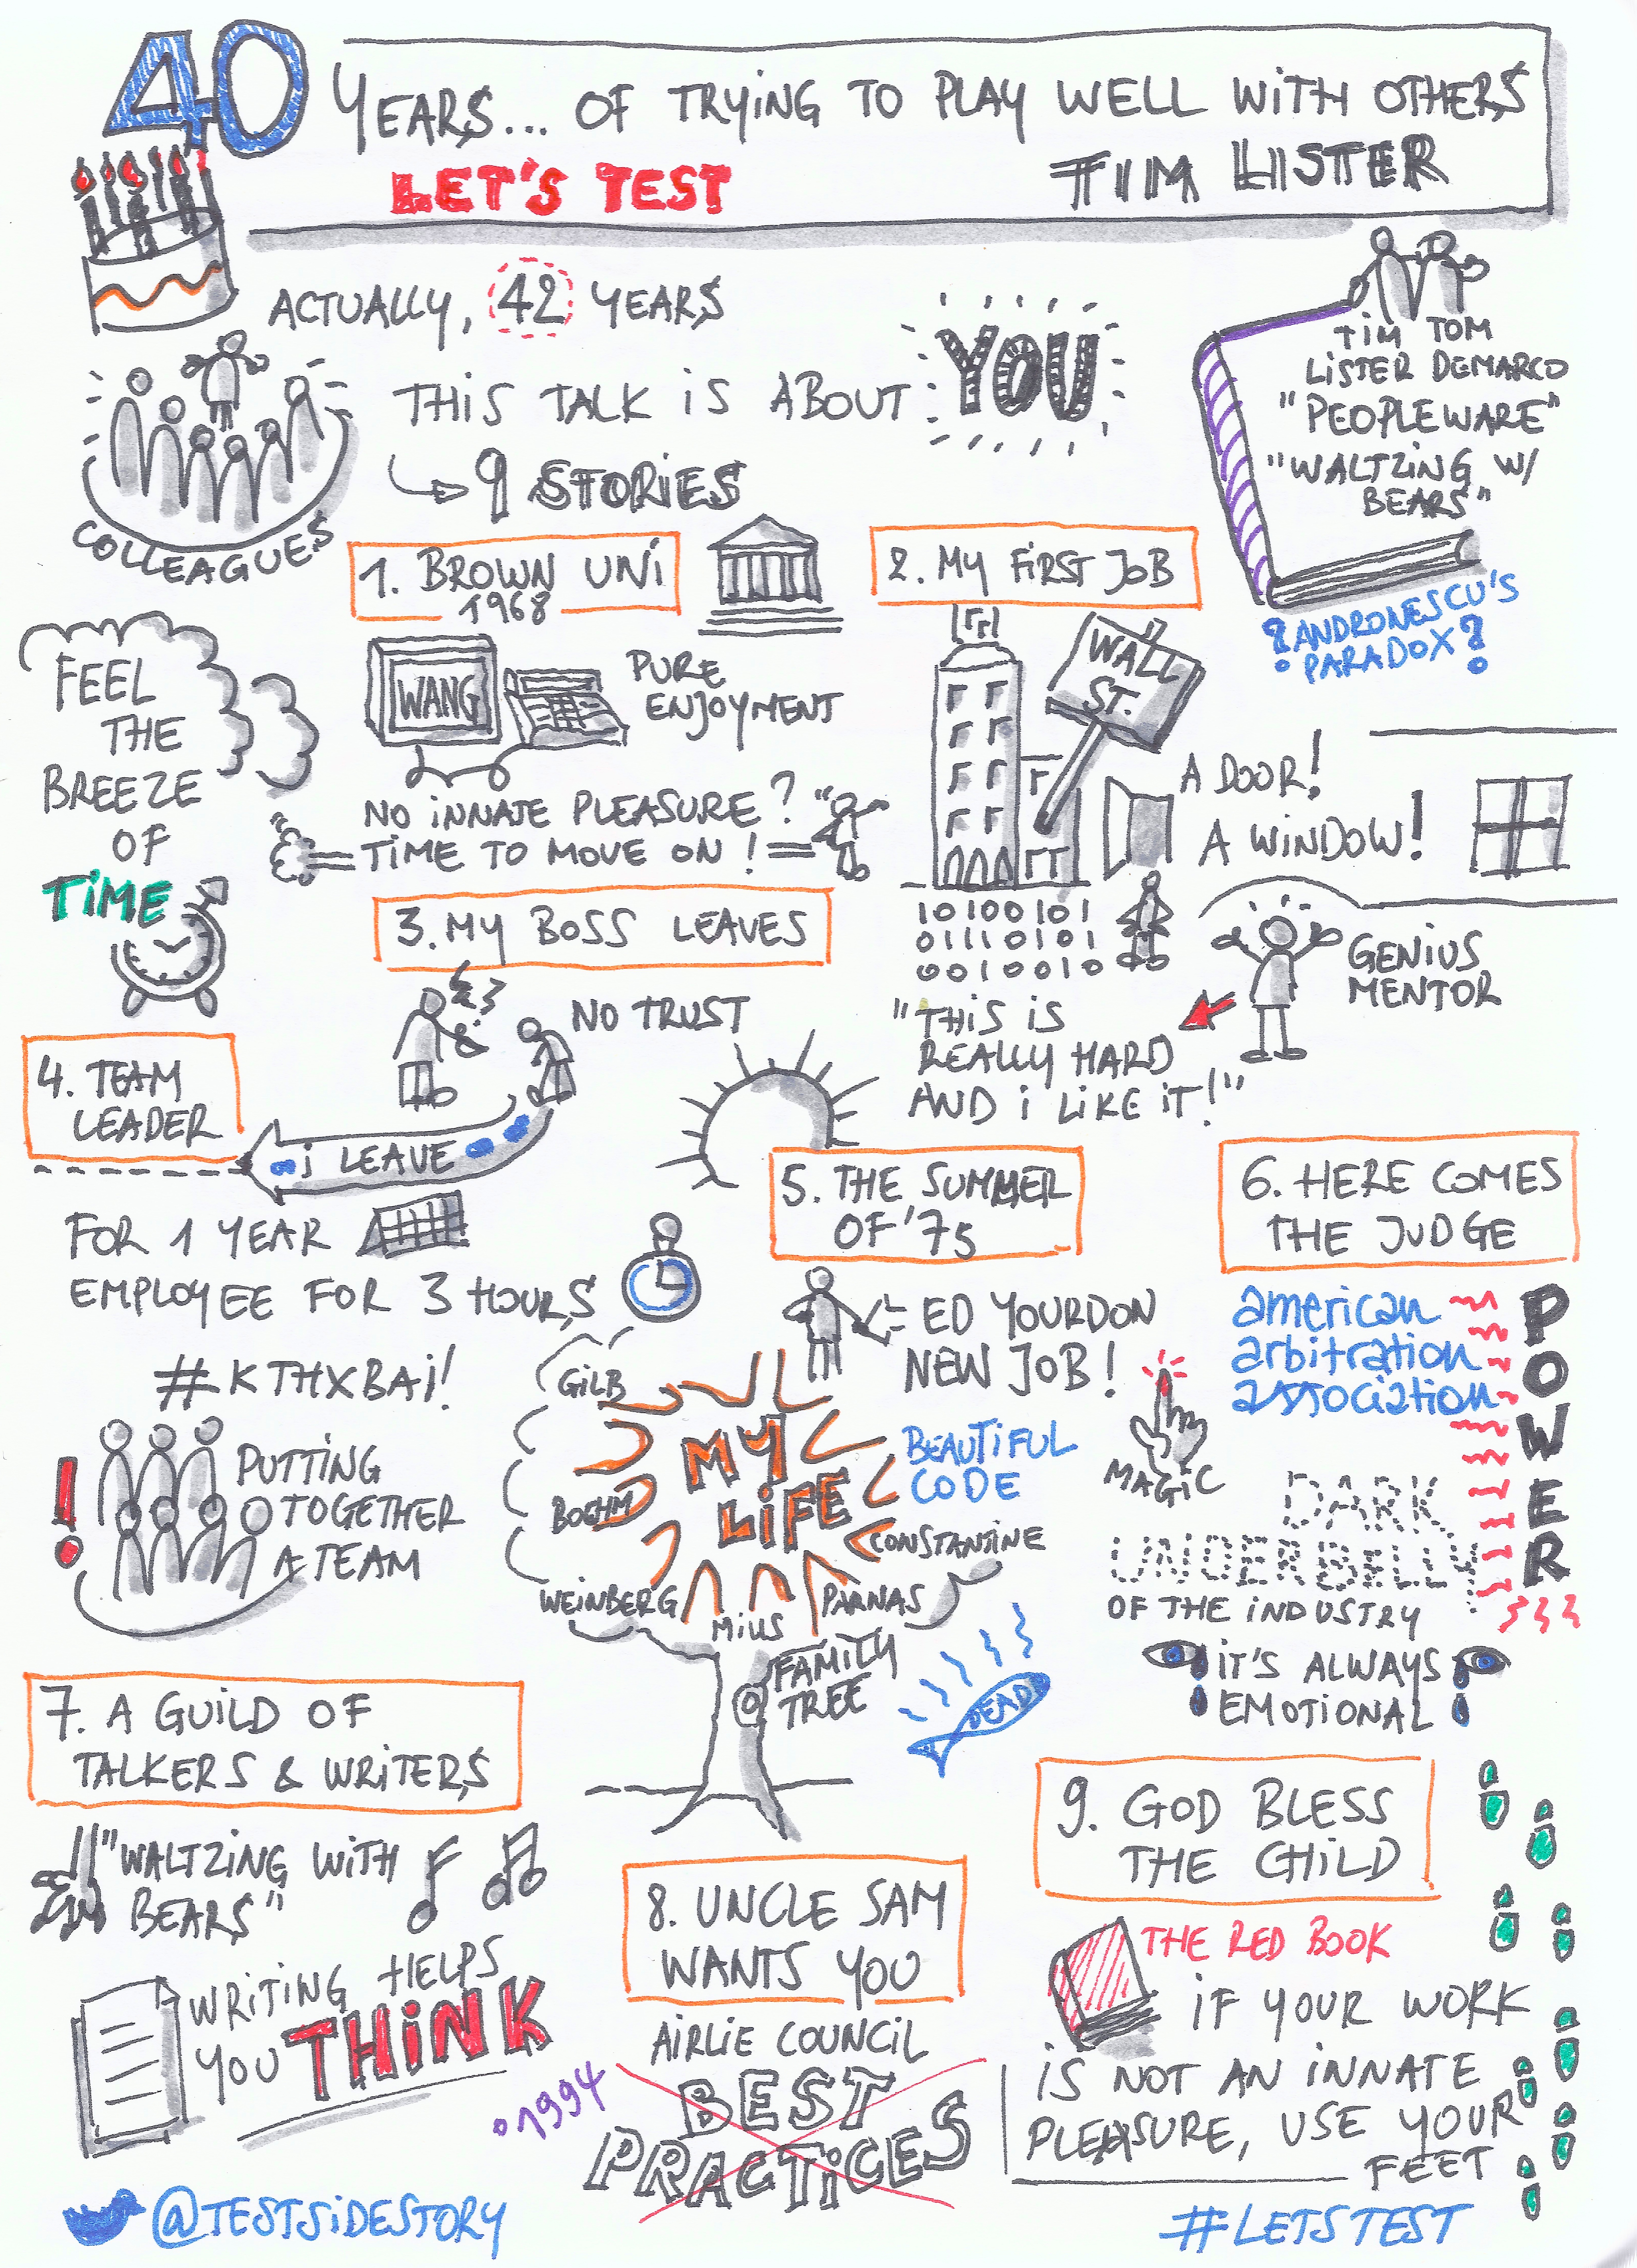 40 YEARS... OF TRYING TO PLAY WELL WITH OTHERS
LET'S TEST
TIM LISTER
ACTUALLY, 42 YEARS
THIS TALK IS ABOUT YOU
9 STORIES
COLLEAGUES
TIM TOM
LISTER DEMARCO
"PEOPLEWARE"
"WALTZING W/
BEARS"
?ANDRONESCU'S
PARADOX?
FEEL
THE
BREEZE
OF
TIME
1. BROWN UNI
1968
WANG
PURE
ENJOYMENT
NO INNATE PLEASURE?
TIME TO MOVE ON!
2. MY FIRST JOB
WALL
ST.
A DOOR!
A WINDOW!
10100101
01110101
0010010
GENIUS
MENTOR
"THIS IS
REALLY HARD
AND I LIKE IT!"
3. MY BOSS LEAVES
NO TRUST
I LEAVE
4. TEAM
LEADER
FOR 1 YEAR
EMPLOYEE FOR 3 HOURS
#KTHXBAI!
PUTTING
TOGETHER
A TEAM
5. THE SUMMER
OF '75
ED YOURDON
NEW JOB!
GILB
MY
LIFE
BEAUTIFUL
CODE
BOEHM
CONSTANTINE
WEINBERG
MILLS
PARNAS
FAMILY
TREE
DEAD
6. HERE COMES
THE JUDGE
american
arbitration
association
POWER
MAGIC
DARK
UNDERBELLY
OF THE INDUSTRY
IT'S ALWAYS
EMOTIONAL
7. A GUILD OF
TALKERS & WRITERS
"WALTZING WITH
BEARS"
WRITING HELPS
YOU THINK
8. UNCLE SAM
WANTS YOU
AIRLIE COUNCIL
1994
BEST
PRACTICES
9. GOD BLESS
THE CHILD
THE RED BOOK
IF YOUR WORK
IS NOT AN INNATE
PLEASURE, USE YOUR
FEET
@TESTSIDESTORY
#LETSTEST